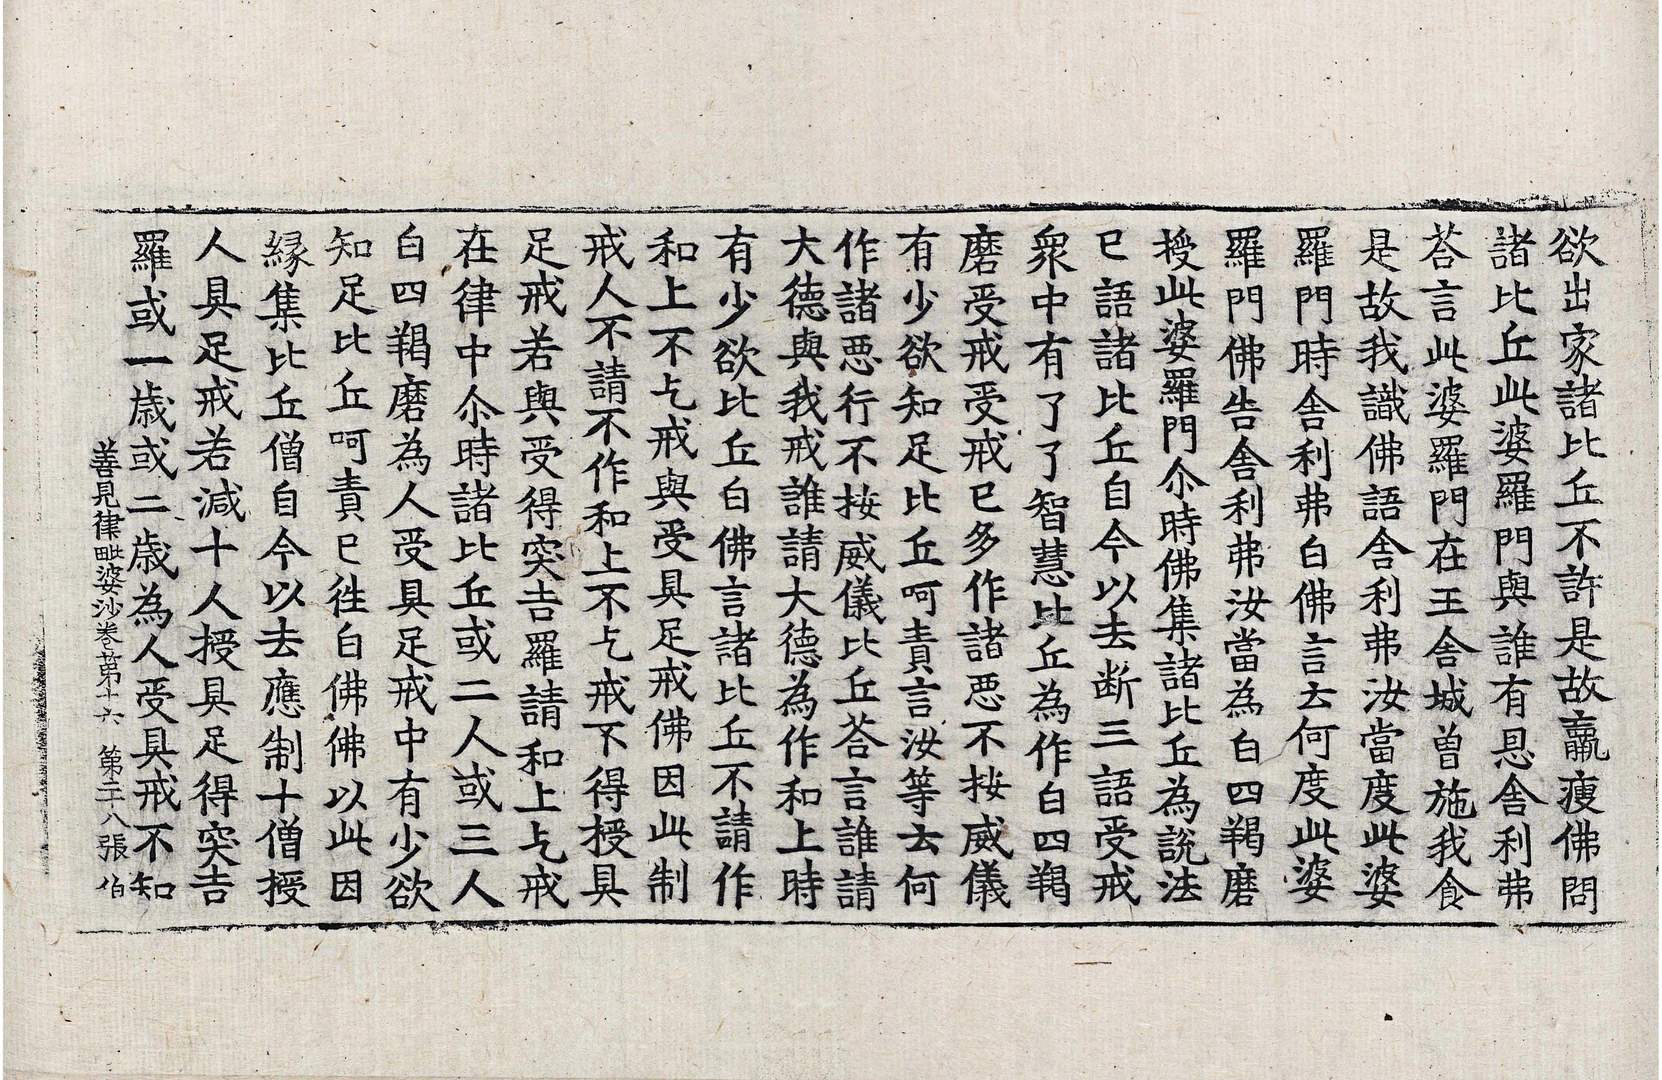 欲出家諸比丘不許是故羸瘦佛問
諸比丘此婆羅門與誰有恩舍利弗
荅言此婆羅門在王舍城曾施我食
是故我識佛語舍利弗汝當度此婆
羅門時舍利弗白佛言云何度此婆
羅門佛告舍利弗汝當為白四羯磨
授此婆羅門尒時佛集諸比丘為說法
已語諸比丘自今以去断三語受戒
衆中有了了智慧比丘為作白四羯
磨受戒受戒已多作諸惡不按威儀
有少欲知足比丘呵責言汝等云何
作諸惡行不按威儀比丘荅言誰請
大德與我戒誰請大德為作和上時
有少欲比丘白佛言諸比丘不請作
和上不乞戒與受具足戒佛因此制
戒人不請不作和上不乞戒不得授具
足戒若與受得突吉羅請和上乞戒
在律中尒時諸比丘或二人或三人
白四羯磨為人受具足戒中有少欲
知足比丘呵責已徃白佛佛以此因
縁集比丘僧自今以去應制十僧授
人具足戒若減十人授具足得突吉
羅或一歳或二歳為人受具戒不知
善見律毗婆沙卷第十六 第二十八張 伯